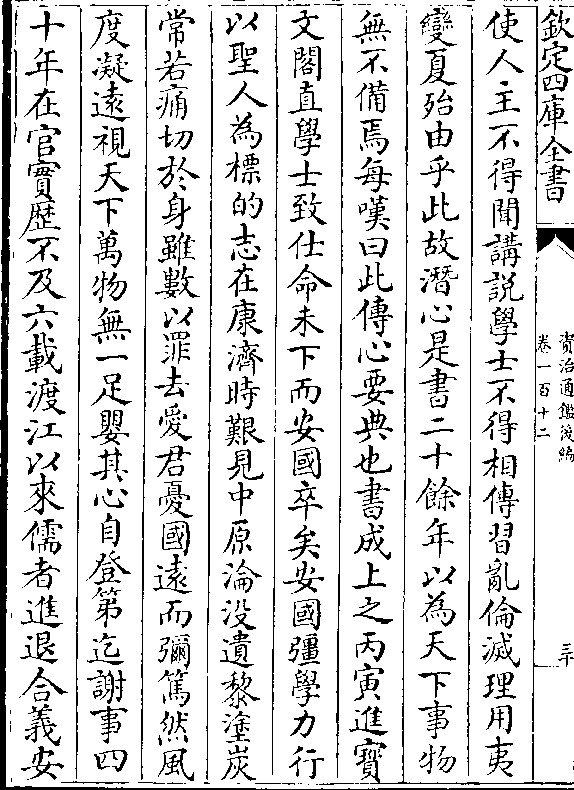 欽定四庫全書
資治通鑑後編
卷一百十二
三十
使人主不得聞講説學士不得相傳習亂倫滅理用夷
變夏殆由乎此故潛心是書二十餘年以為天下事物
無不備焉每嘆曰此傳心要典也書成上之丙寅進寶
文閣直學士致仕命未下而安國卒矣安國彊學力行
以聖人為標的志在康濟時艱見中原淪没遺黎塗炭
常若痛切於身雖數以罪去愛君憂國遠而彌篤然風
度凝遠視天下萬物無一足嬰其心自登第迄謝事四
十年在官實歴不及六載渡江以來儒者進退合義安